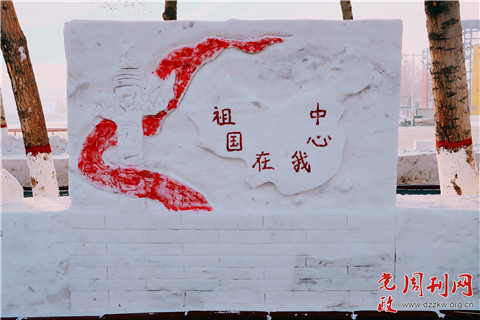 祖国在我心中
党政周刊网
www.dzzkw.org.cn